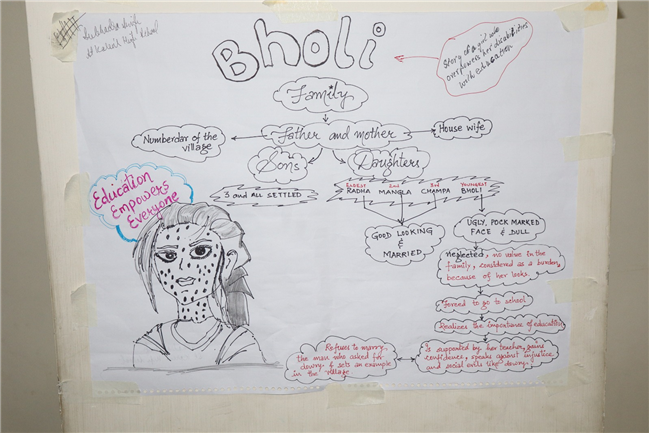 Subhadra Singh
St Kabir's High School
Bholi
Story of a girl who
overpowers her disabilities
with education
Family
Father and mother
Numberdar of the
village
House wife
Sons
Daughters
3 and ALL SETTLED
ELDEST
RADHA
2nd
MANGLA
3rd
CHAMPA
YOUNGEST
BHOLI
GOOD LOOKING
&
MARRIED
UGLY, POCK MARKED
FACE & DULL
neglected, no value in the
family, considered as a burden,
because of her looks.
forced to go to school
Realizes the importance of education
is supported by her teacher, gains
confidence, speaks against injustice
and social evils like dowry.
Refuses to marry
the man who asked for
dowry & sets an example
in the village
Education
Empowers
Everyone